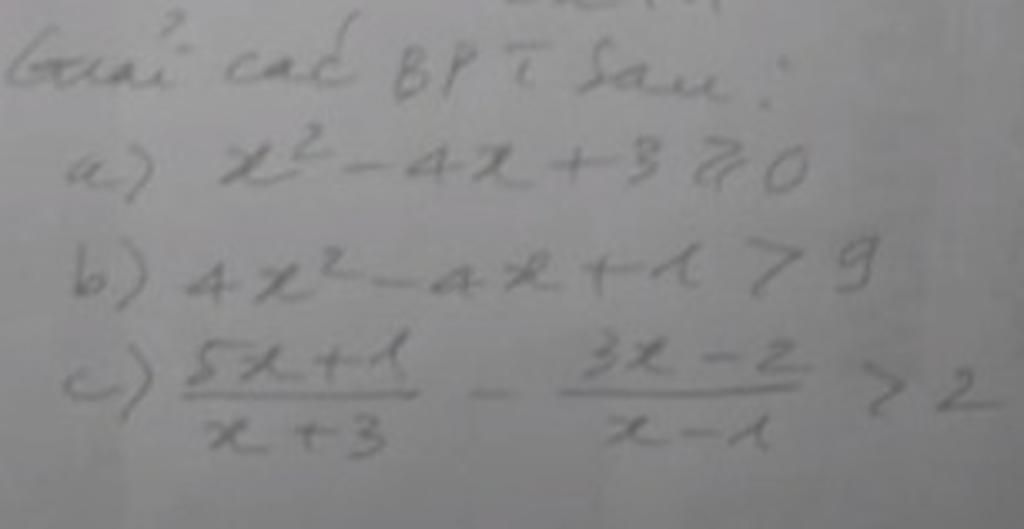 Giải các BPT sau:
a) x² - 4x + 3 ⩾ 0
b) 4x² - 4x + 1 > 9
c) \frac{5x+1}{x+3} - \frac{3x-2}{x-1} > 2